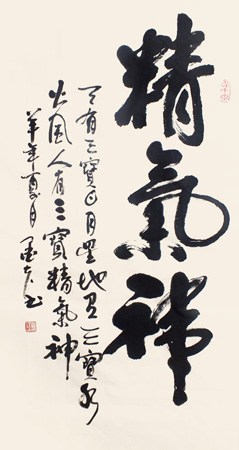 精氣神
天有三寶日月星地有三寶水
火風人有三寶精氣神
羊年夏月